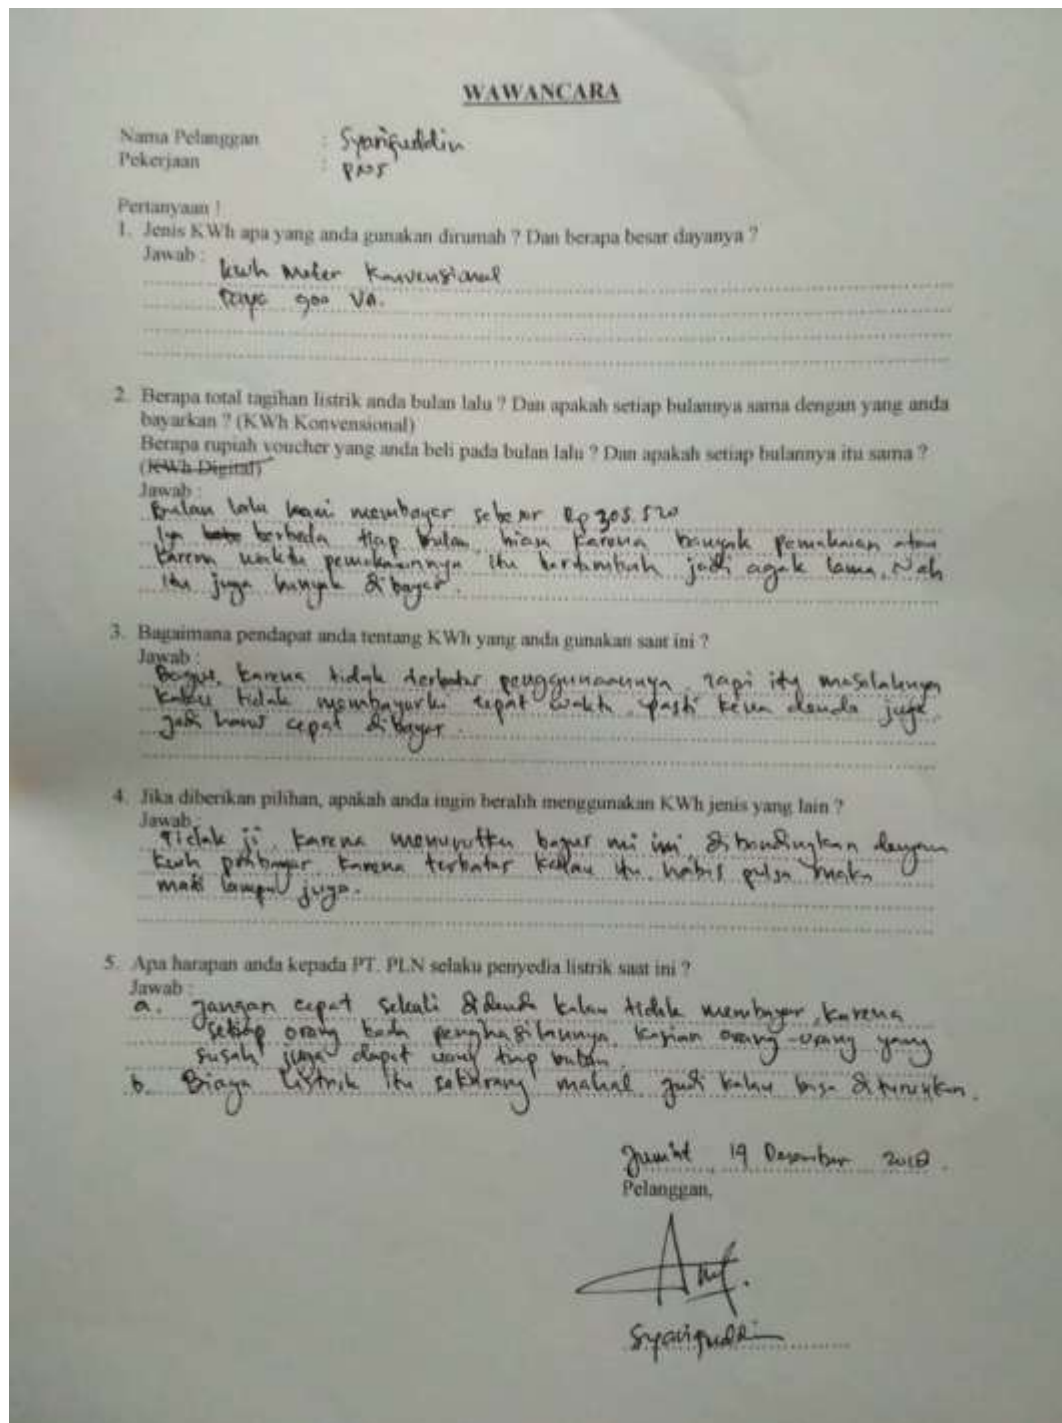 WAWANCARA
Nama Pelanggan : Syarifuddin
Pekerjaan : PNS
Pertanyaan !
1. Jenis KWh apa yang anda gunakan dirumah ? Dan berapa besar dayanya ?
Jawab :
kwh Meter Konvensional
Daya 900 VA.
2. Berapa total tagihan listrik anda bulan lalu ? Dan apakah setiap bulannya sama dengan yang anda
bayarkan ? (KWh Konvensional)
Berapa rupiah voucher yang anda beli pada bulan lalu ? Dan apakah setiap bulannya itu sama ?
(KWh Digital)
Jawab :
Bulan lalu kami membayar sebesar Rp 305.520
berbeda tiap bulan, karena banyak pemakaian atau
karena waktu pemakaiannya itu bertambah jadi agak lama. Nah
itu juga banyak dibayar.
3. Bagaimana pendapat anda tentang KWh yang anda gunakan saat ini ?
Jawab :
Bagus, karena tidak terbatas penggunaannya, tapi itu masalahnya
kalau tidak membayarki tepat waktu, pasti kena denda juga,
jadi harus cepat dibayar.
4. Jika diberikan pilihan, apakah anda ingin beralih menggunakan KWh jenis yang lain ?
Jawab :
Tidak ji, karena menurutku bagus mi ini, dibandingkan dengan
kwh prabayar, karena terbatas kalau itu, habis pulsa maka
mati lampu juga.
5. Apa harapan anda kepada PT. PLN selaku penyedia listrik saat ini ?
Jawab :
a. Jangan cepat sekali didenda kalau tidak membayar, karena
setiap orang beda penghasilannya, kasian orang-orang yang
susah juga dapat uang tiap bulan.
b. Biaya listrik itu sekarang mahal jadi kalau bisa diturunkan.
Jum'at, 19 Desember
Pelanggan,
Syarifuddin